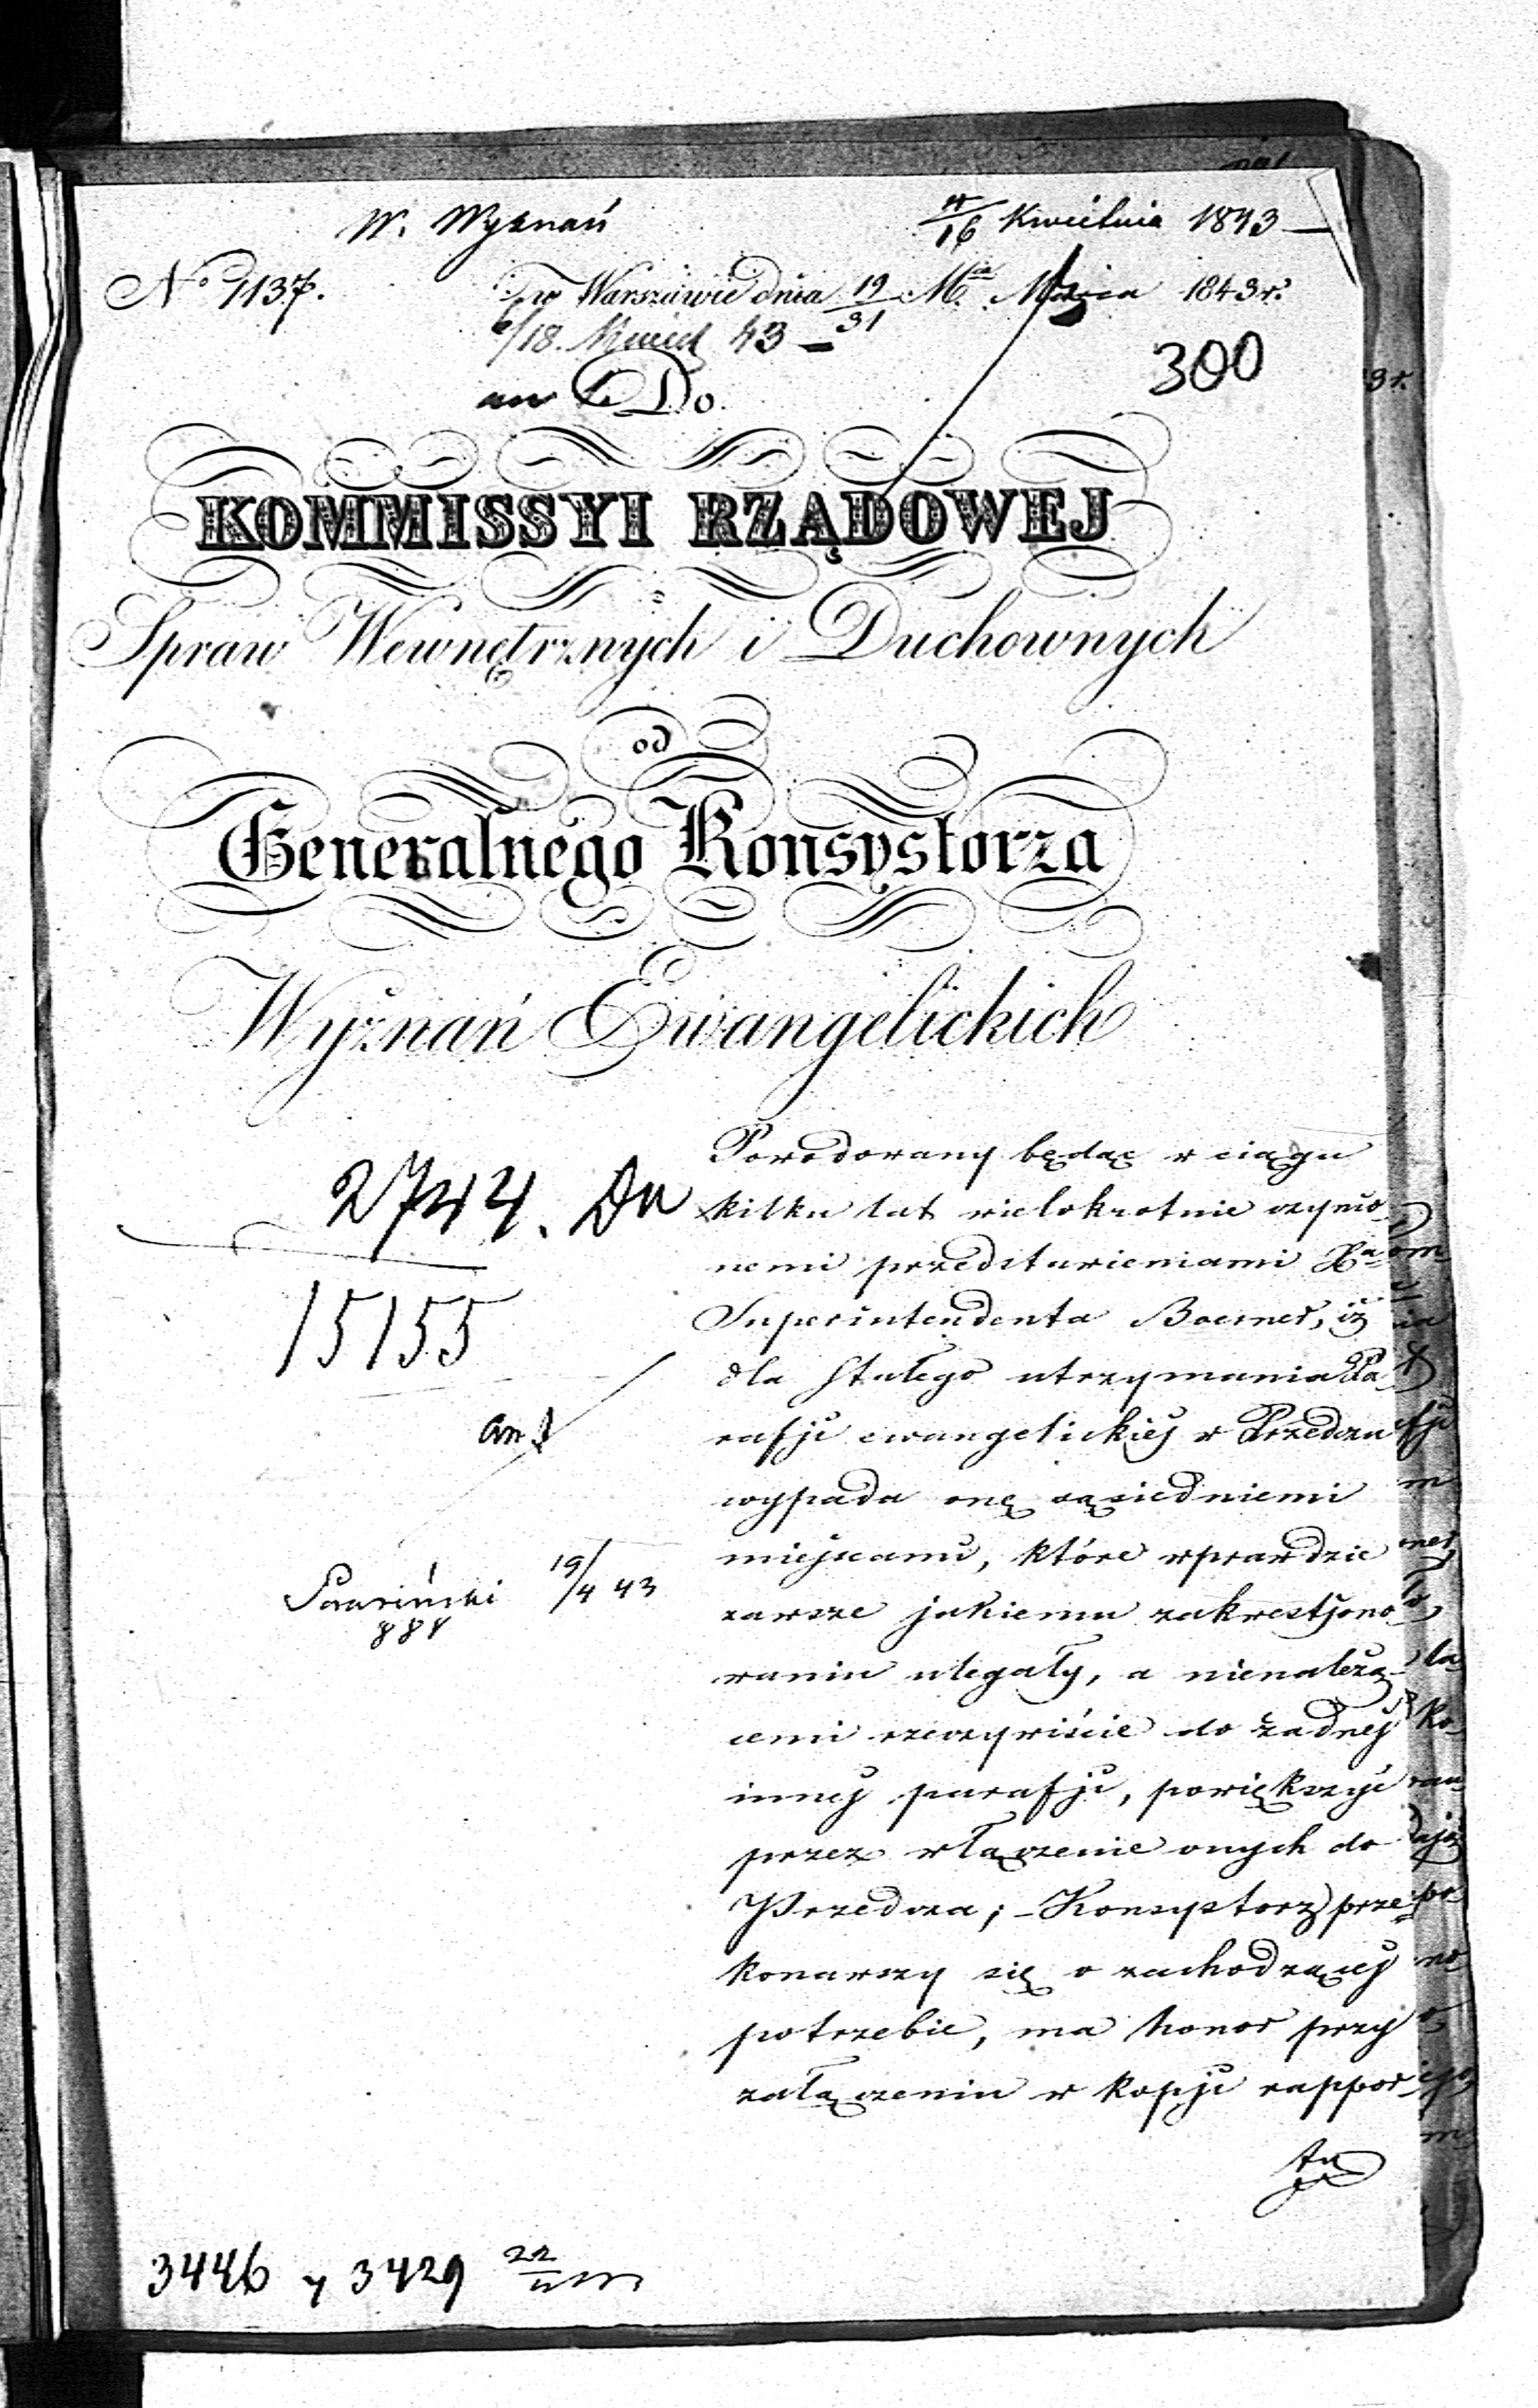 W. Wyznań
4/16 Kwietnia 1843
No 1137.
w Warszawie dnia 19/31 M.ca Marca 1843 r.
6/18. 43
300
Do
KOMMISSYI RZĄDOWEJ
Spraw Wewnętrznych i Duchownych
od
Generalnego Konsystorza
Wyznań Ewangelickich
2744.
15155
19/4 43
884
Powodowany będąc w ciągu
kilku lat wielokrotnie czynio-
nemi przedstawieniami Xa
Superintendenta Boerner, iż
dla stałego utrzymania Pa-
rafji ewangelickiej w Przedczu
wypada onę sąsiedniemi
miejscami, które wprawdzie
zawsze jakiemu zakwestjono-
waniu ulegały, a nienależą-
cemi rzeczywiście do żadnej
innej parafji, powiększyć
przez włączenie onych do
Przedcza; - Konsystorz prze-
konawszy się o zachodzącej
potrzebie, ma honor przy
załączeniu w kopji rappor-
tu
3446 y 3429 22